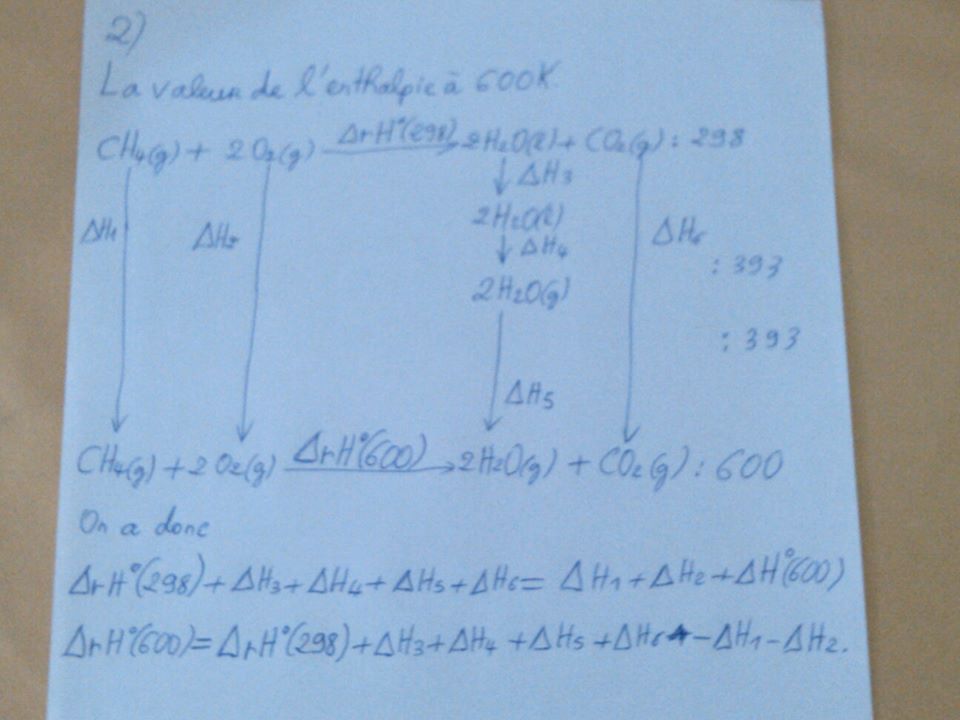 2)
La valeur de l'enthalpie à 600K
CH₄(g) + 2O₂(g) ΔrH°(298) 2H₂O(l) + CO₂(g) : 298
ΔH₃
2H₂O(l)
ΔH₁ ΔH₂ ΔH₄ ΔH₆
: 393
2H₂O(g)
: 393
ΔH₅
CH₄(g) + 2O₂(g) ΔrH°(600) 2H₂O(g) + CO₂(g) : 600
On a donc
ΔrH°(298) + ΔH₃ + ΔH₄ + ΔH₅ + ΔH₆ = ΔH₁ + ΔH₂ + ΔH°(600)
ΔrH°(600) = ΔrH°(298) + ΔH₃ + ΔH₄ + ΔH₅ + ΔH₆ - ΔH₁ - ΔH₂.